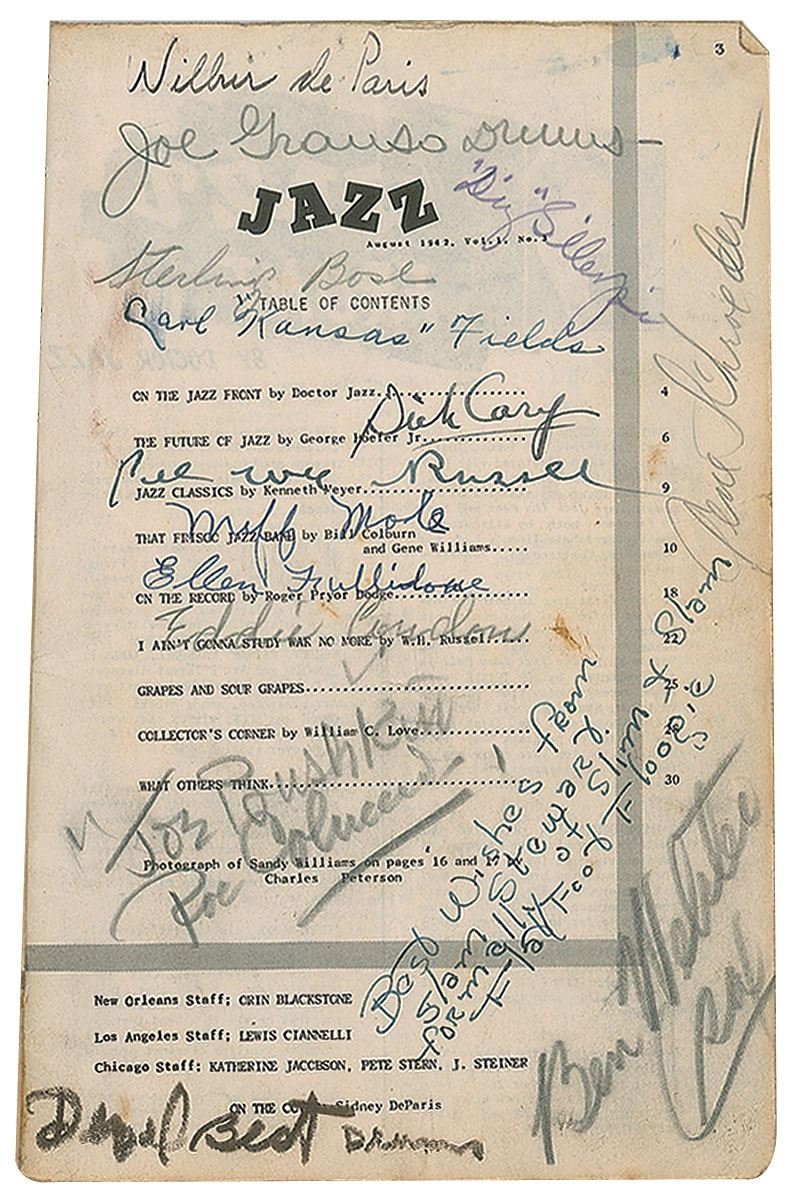 3
Wilbur de Paris
Joe Grauso Drums
JAZZ
"Diz" Gillespie
August 1942, Vol. 1, No. 3
Sterling Bose
TABLE OF CONTENTS
Carl "Kansas" Fields
ON THE JAZZ FRONT by Doctor Jazz........................ 4
Dick Cary
THE FUTURE OF JAZZ by George Hoefer Jr.................. 6
Pee wee Russell
JAZZ CLASSICS by Kenneth Meyer........................ 9
Miff Mole
THAT FRISCO JAZZ BAND by Bill Colburn
and Gene Williams..... 10
Ellen
ON THE RECORD by Roger Pryor Dodge..................... 18
Eddie Condon
I AIN'T GONNA STUDY WAR NO MORE by W.H. Russel....... 22
GRAPES AND SOUR GRAPES........................ 25
COLLECTOR'S CORNER by William C. Love..................
WHAT OTHERS THINK........................ 30
Joe Bushkin
Gene Schroeder
Photograph of Sandy Williams on pages 16 and 17
Charles Peterson
Best Wishes from
Slam Stewart
formally of Slim & Slam
Flat Foot Floogie
Ben Webster
New Orleans Staff; ORIN BLACKSTONE
Los Angeles Staff; LEWIS CIANNELLI
Chicago Staff; KATHERINE JACOBSON, PETE STERN, J. STEINER
ON THE Sidney DeParis
Denzel Best Drums